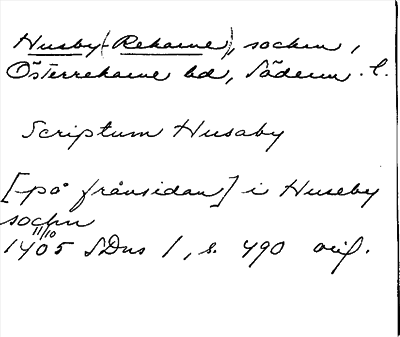 Husby (-Rekarne), socken,
Österrekarne hd, Söderm. l.
Scriptum Husaby
[på frånsidan] i Huseby
socken
11/10
1405 SDns 1, s. 490 orig.